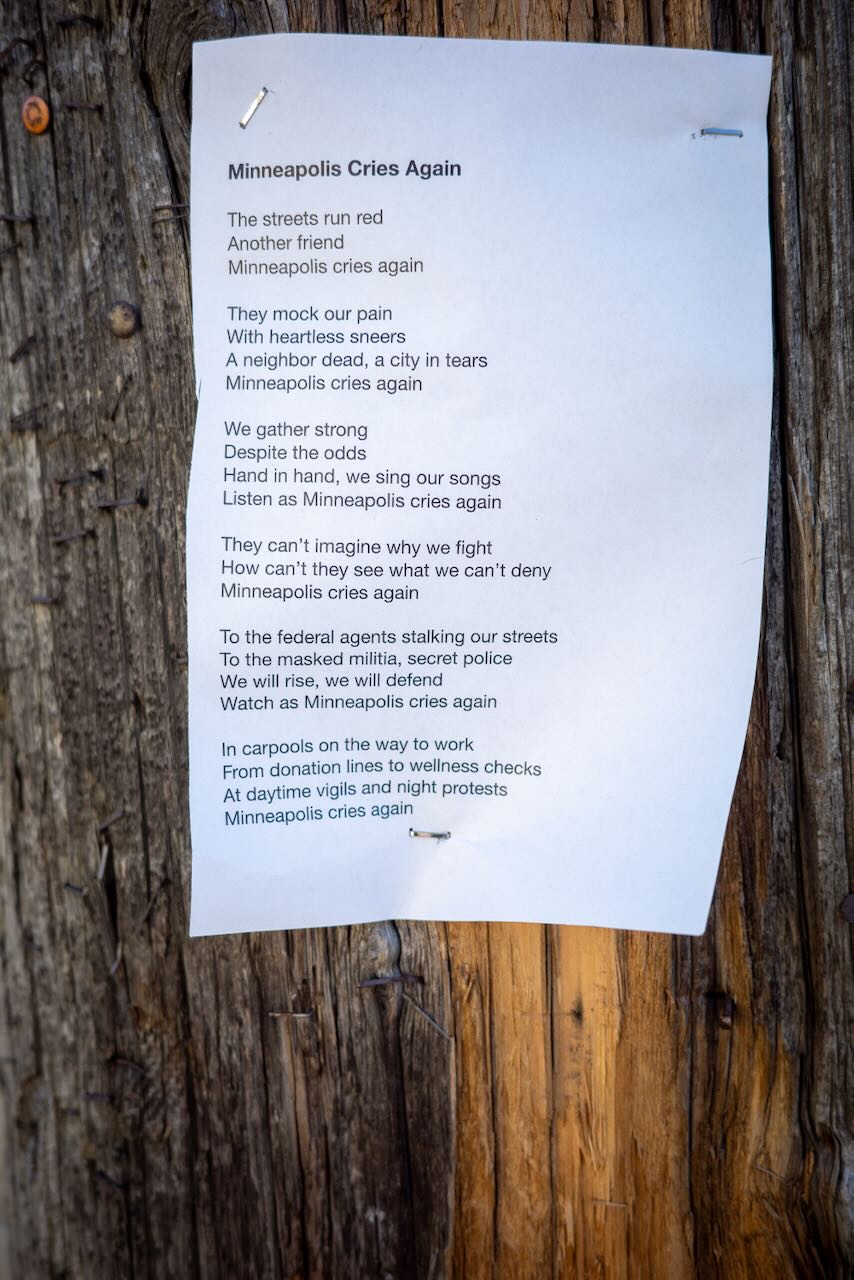 Minneapolis Cries Again
The streets run red
Another friend
Minneapolis cries again
They mock our pain
With heartless sneers
A neighbor dead, a city in tears
Minneapolis cries again
We gather strong
Despite the odds
Hand in hand, we sing our songs
Listen as Minneapolis cries again
They can’t imagine why we fight
How can’t they see what we can’t deny
Minneapolis cries again
To the federal agents stalking our streets
To the masked militia, secret police
We will rise, we will defend
Watch as Minneapolis cries again
In carpools on the way to work
From donation lines to wellness checks
At daytime vigils and night protests
Minneapolis cries again